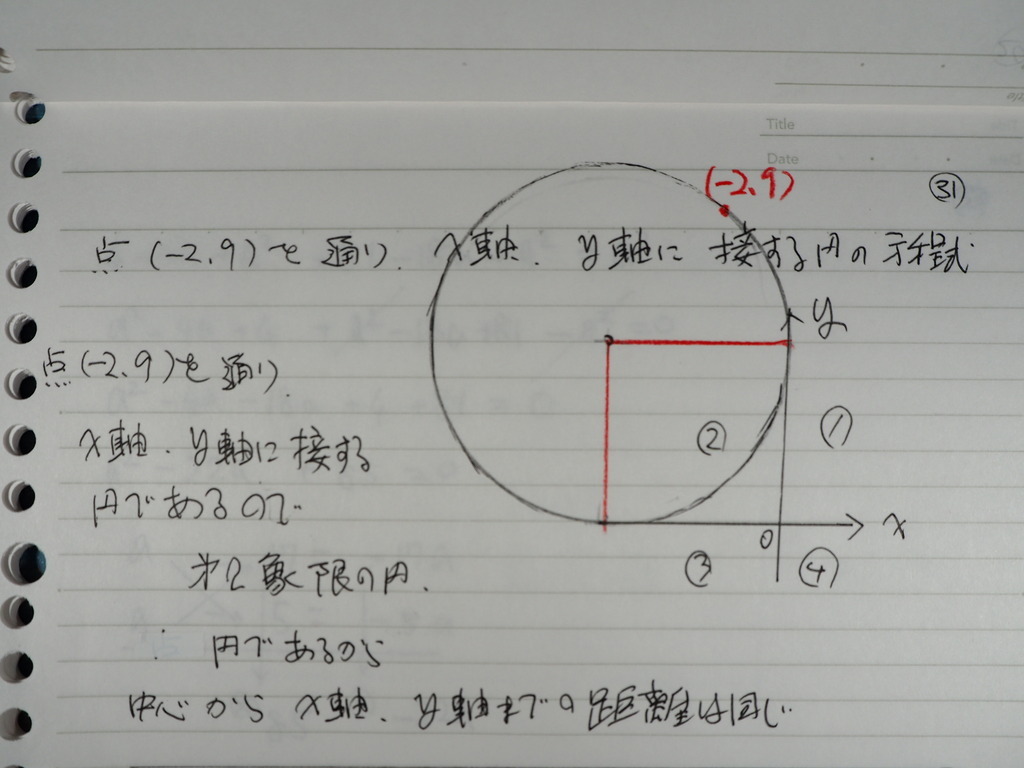 Title
Date
(-2,9)
㉛
点(-2,9)を通り、x軸、y軸に接する円の方程式
y
点(-2,9)を通り
② ①
x軸、y軸に接する
円であるので
x
0
③ ④
第2象限の円.
∴ 円であるから
中心からx軸、y軸までの距離は同じ.